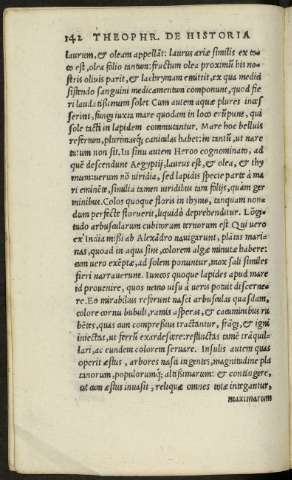 142 THEOPHR. DE HISTORIA
laurum, & oleam appellãt: laurus ariæ similis ex to
to est, olea folio tantum: fructum olea proximũ his no
stris oliuis parit, & lachrymam emittit, ex qua medici
sistendo sanguini medicamentum componunt, quod fie
ri laudatissimum solet. Cum autem aquæ plures inaſ
serint, fungi iuxta mare quodam in loco erũpunt, qui
sole tacti in lapidem commutantur. Mare hoc belluis
refertum, plurimasq; caniculas habet: in tantũ, ut nare
tutum non sit. In sinu autem Heroo cognominato, ad
quẽ descendunt Aegyptij, laurus est, & olea, & thy
mum: uerum nõ uiridia, sed lapidis specie parte à ma
ri eminẽte, similia tamen uiridibus tum folijs, quàm ger
minibus. Colos quoque floris in thymo, tanquam non-
dum perfecte floruerit, liquidò deprehenditur. Lõgi
tudo arbuscularum cubitorum ternorum est. Qui uero
ex India missi ab Alexãdro nauigarunt, plantas marii
nas, quoad in aqua sint, colorem algæ minutæ habere:
cum uero exẽptæ, ad solem ponuntur, mox sali similes
fieri narrauerunt. Iuncos quoque lapides apud mare
id prouenire, quos nemo uisu à ueris potuit discerne-
re. Eo mirabilius referunt nasci arbusculas quasdam,
colore cornu bubuli, ramis asperas, & cacuminibus ru
bẽtes, quas cum compressius tractantur, frãgi, & igni
iniectas, ut ferrũ exardescere: restinctas tamẽ trãquil-
lari, ac eundem colorem seruare. Insulis autem quas
operit æstus, arbores nasci ingentes, magnitudine pla
tanorum, populorumq; altissimarum: & contingere,
ut cum æstus inuasit, reliquæ omnes totæ integantur,
maximarum